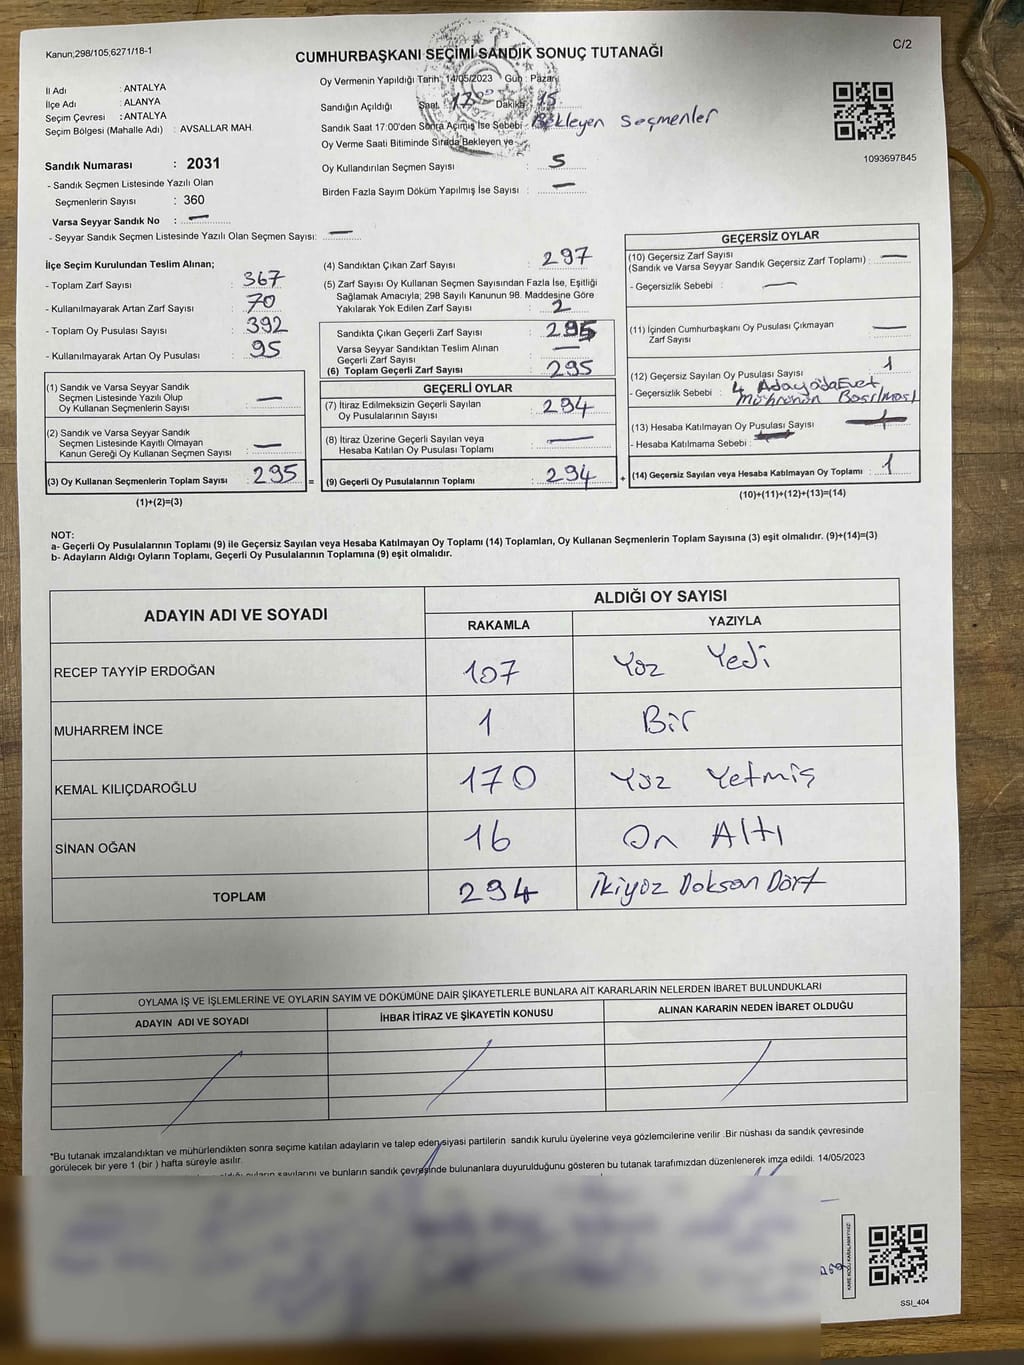 Kanun;298/105,6271/18-1
C/2
CUMHURBAŞKANI SEÇİMİ SANDIK SONUÇ TUTANAĞI
İl Adı : ANTALYA
İlçe Adı : ALANYA
Seçim Çevresi : ANTALYA
Seçim Bölgesi (Mahalle Adı) : AVSALLAR MAH.
Sandık Numarası : 2031
- Sandık Seçmen Listesinde Yazılı Olan
Seçmenlerin Sayısı : 360
Varsa Seyyar Sandık No : —
- Seyyar Sandık Seçmen Listesinde Yazılı Olan Seçmen Sayısı: —
Oy Vermenin Yapıldığı Tarih: 14/05/2023 Gün : Pazar
Sandığın Açıldığı Saat: 17:00 Dakika 15
Sandık Saat 17:00'den Sonra Açılmış İse Sebebi - Bekleyen Seçmenler
Oy Verme Saati Bitiminde Sırada Bekleyen ve
Oy Kullandırılan Seçmen Sayısı : 5
Birden Fazla Sayım Döküm Yapılmış İse Sayısı : —
1093697845
İlçe Seçim Kurulundan Teslim Alınan;
- Toplam Zarf Sayısı : 367
- Kullanılmayarak Artan Zarf Sayısı : 70
- Toplam Oy Pusulası Sayısı : 392
- Kullanılmayarak Artan Oy Pusulası : 95
(1) Sandık ve Varsa Seyyar Sandık
Seçmen Listesinde Yazılı Olup
Oy Kullanan Seçmenlerin Sayısı : —
(2) Sandık ve Varsa Seyyar Sandık
Seçmen Listesinde Kayıtlı Olmayan
Kanun Gereği Oy Kullanan Seçmen Sayısı : —
(3) Oy Kullanan Seçmenlerin Toplam Sayısı : 295 =
(1)+(2)=(3)
(4) Sandıktan Çıkan Zarf Sayısı : 297
(5) Zarf Sayısı Oy Kullanan Seçmen Sayısından Fazla İse, Eşitliği
Sağlamak Amacıyla; 298 Sayılı Kanunun 98. Maddesine Göre
Yakılarak Yok Edilen Zarf Sayısı : 2
Sandıkta Çıkan Geçerli Zarf Sayısı : 295
Varsa Seyyar Sandıktan Teslim Alınan
Geçerli Zarf Sayısı : —
(6) Toplam Geçerli Zarf Sayısı : 295
GEÇERLİ OYLAR
(7) İtiraz Edilmeksizin Geçerli Sayılan
Oy Pusulalarının Sayısı : 294
(8) İtiraz Üzerine Geçerli Sayılan veya
Hesaba Katılan Oy Pusulası Toplamı : —
(9) Geçerli Oy Pusulalarının Toplamı : 294 +
GEÇERSİZ OYLAR
(10) Geçersiz Zarf Sayısı
(Sandık ve Varsa Seyyar Sandık Geçersiz Zarf Toplamı) : —
- Geçersizlik Sebebi : —
(11) İçinden Cumhurbaşkanı Oy Pusulası Çıkmayan
Zarf Sayısı : —
(12) Geçersiz Sayılan Oy Pusulası Sayısı : 1
- Geçersizlik Sebebi : 4 Adaya'da Evet
Mührünün Basılması
(13) Hesaba Katılmayan Oy Pusulası Sayısı
- Hesaba Katılmama Sebebi :
(14) Geçersiz Sayılan veya Hesaba Katılmayan Oy Toplamı : 1
(10)+(11)+(12)+(13)=(14)
NOT:
a- Geçerli Oy Pusulalarının Toplamı (9) ile Geçersiz Sayılan veya Hesaba Katılmayan Oy Toplamı (14) Toplamları, Oy Kullanan Seçmenlerin Toplam Sayısına (3) eşit olmalıdır. (9)+(14)=(3)
b- Adayların Aldığı Oyların Toplamı, Geçerli Oy Pusulalarının Toplamına (9) eşit olmalıdır.
ADAYIN ADI VE SOYADI
ALDIĞI OY SAYISI
RAKAMLA YAZIYLA
RECEP TAYYİP ERDOĞAN 107 Yüz Yedi
MUHARREM İNCE 1 Bir
KEMAL KILIÇDAROĞLU 170 Yüz Yetmiş
SİNAN OĞAN 16 On Altı
TOPLAM 294 İkiyüz Doksan Dört
OYLAMA İŞ VE İŞLEMLERİNE VE OYLARIN SAYIM VE DÖKÜMÜNE DAİR ŞİKAYETLERLE BUNLARA AİT KARARLARIN NELERDEN İBARET BULUNDUKLARI
ADAYIN ADI VE SOYADI İHBAR İTİRAZ VE ŞİKAYETİN KONUSU ALINAN KARARIN NEDEN İBARET OLDUĞU
*Bu tutanak imzalandıktan ve mühürlendikten sonra seçime katılan adayların ve talep eden siyasi partilerin sandık kurulu üyelerine veya gözlemcilerine verilir .Bir nüshası da sandık çevresinde
görülecek bir yere 1 (bir ) hafta süreyle asılır.
oyların sayılarını ve bunların sandık çevresinde bulunanlara duyurulduğunu gösteren bu tutanak tarafımızdan düzenlenerek imza edildi. 14/05/2023
KARE KODU KARALAMAYINIZ!
SSI_404